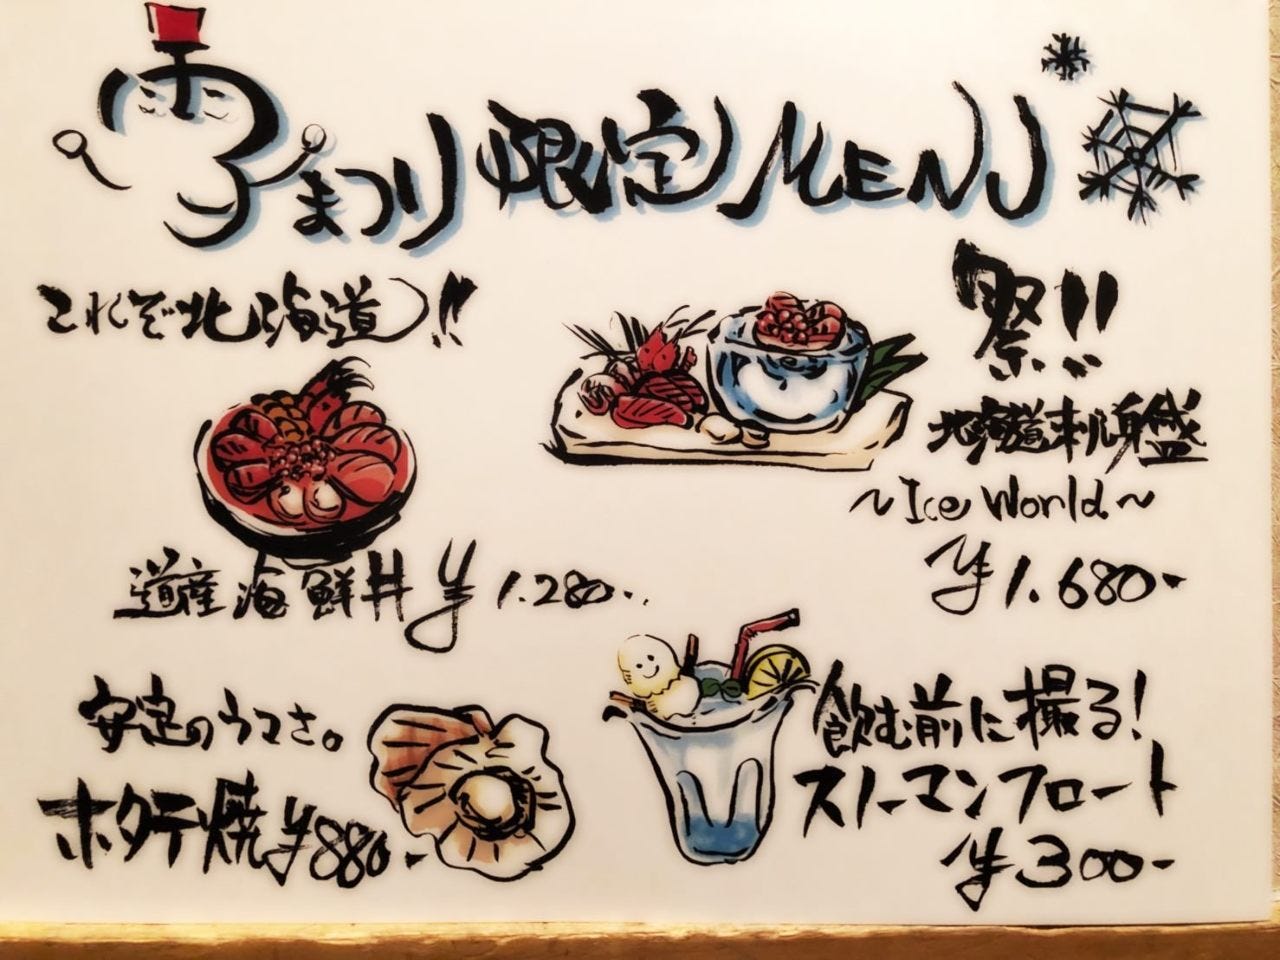 雪まつり限定MENU
これぞ北海道!!
道産海鮮丼 ¥1.280-
祭!!
北海道刺身盛
~Ice World~
¥1.680-
安定のうまさ。
ホタテ焼 ¥880-
飲む前に撮る!
スノーマンフロート
¥300-